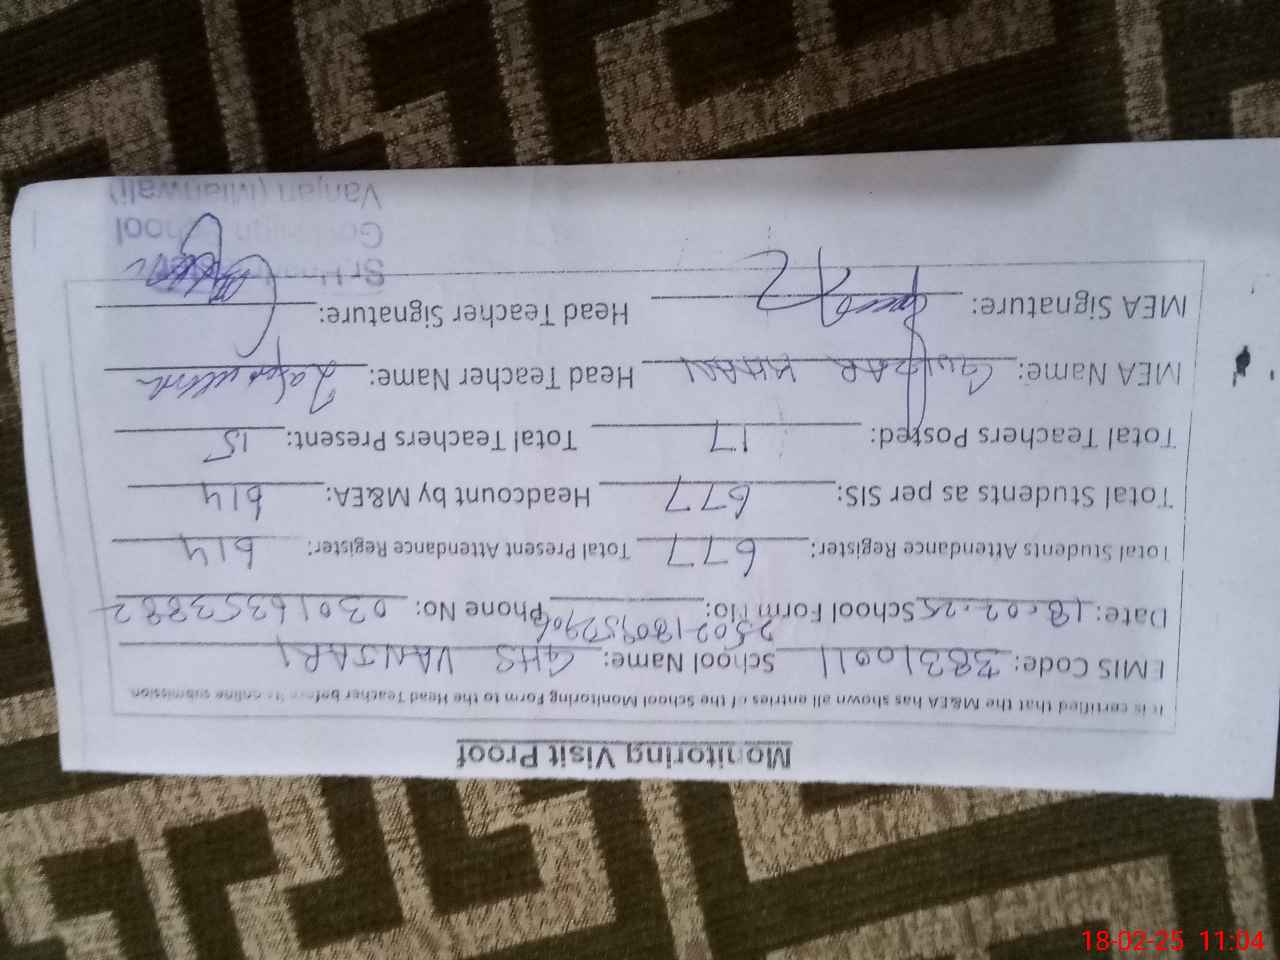 Monitoring Visit Proof
It is certified that the M&EA has shown all entries of the School Monitoring Form to the Head Teacher before its online submission.
EMIS Code: 38310011 School Name: GHS VANJARI
Date: 18.02.25 School Form No: 2502180957290 Phone No: 03016353882
Total Students Attendance Register: 677 Total Present Attendance Register: 614
Total Students as per SIS: 677 Headcount by M&EA: 614
Total Teachers Posted: 17 Total Teachers Present: 15
MEA Name: GULZAR KHAN Head Teacher Name: Zafar ullah
MEA Signature: Head Teacher Signature:
Sr.H
School
Vanjari (Mianwali)
18-02-25 11:04